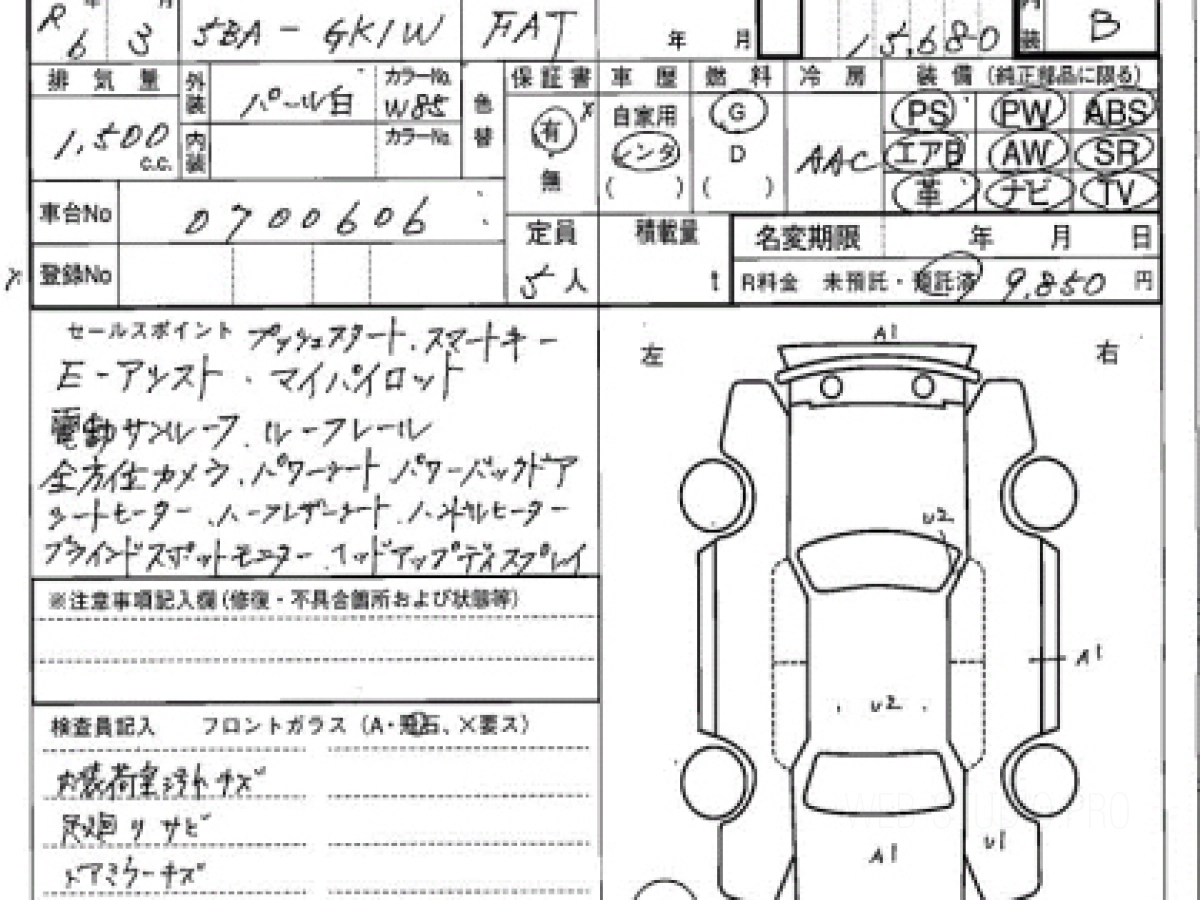 年 月
R 6 3 5BA-GK1W FAT 年 月 15,680 内装 B
排気量 外装 パール白 カラーNo. W85 色替 保証書 車歴 燃料 冷房 装備 (純正部品に限る)
1,500 c.c. 内装 カラーNo. 有 自家用 G AAC PS PW ABS
レンタ D エアB AW SR
無 ( ) ( ) 革 ナビ TV
車台No 0700606 定員 積載量 名変期限 年 月 日
登録No 5人 t R料金 未預託・預託済 9,850 円
セールスポイント プッシュスタート、スマートキー
E-アシスト・マイパイロット
電動サンルーフ、ルーフレール
全方位カメラ、パワーシート パワーバックドア
シートヒーター、ハーフレザーシート、ハンドルヒーター
ブラインドスポットモニター ヘッドアップディスプレイ
左 A1 右
U2
A1
U2
A1 U1
※注意事項記入欄(修復・不具合箇所および状態等)
検査員記入 フロントガラス (A・飛石、×要ス)
内装荷室汚れ キズ
足廻り サビ
ドアミラーキズ